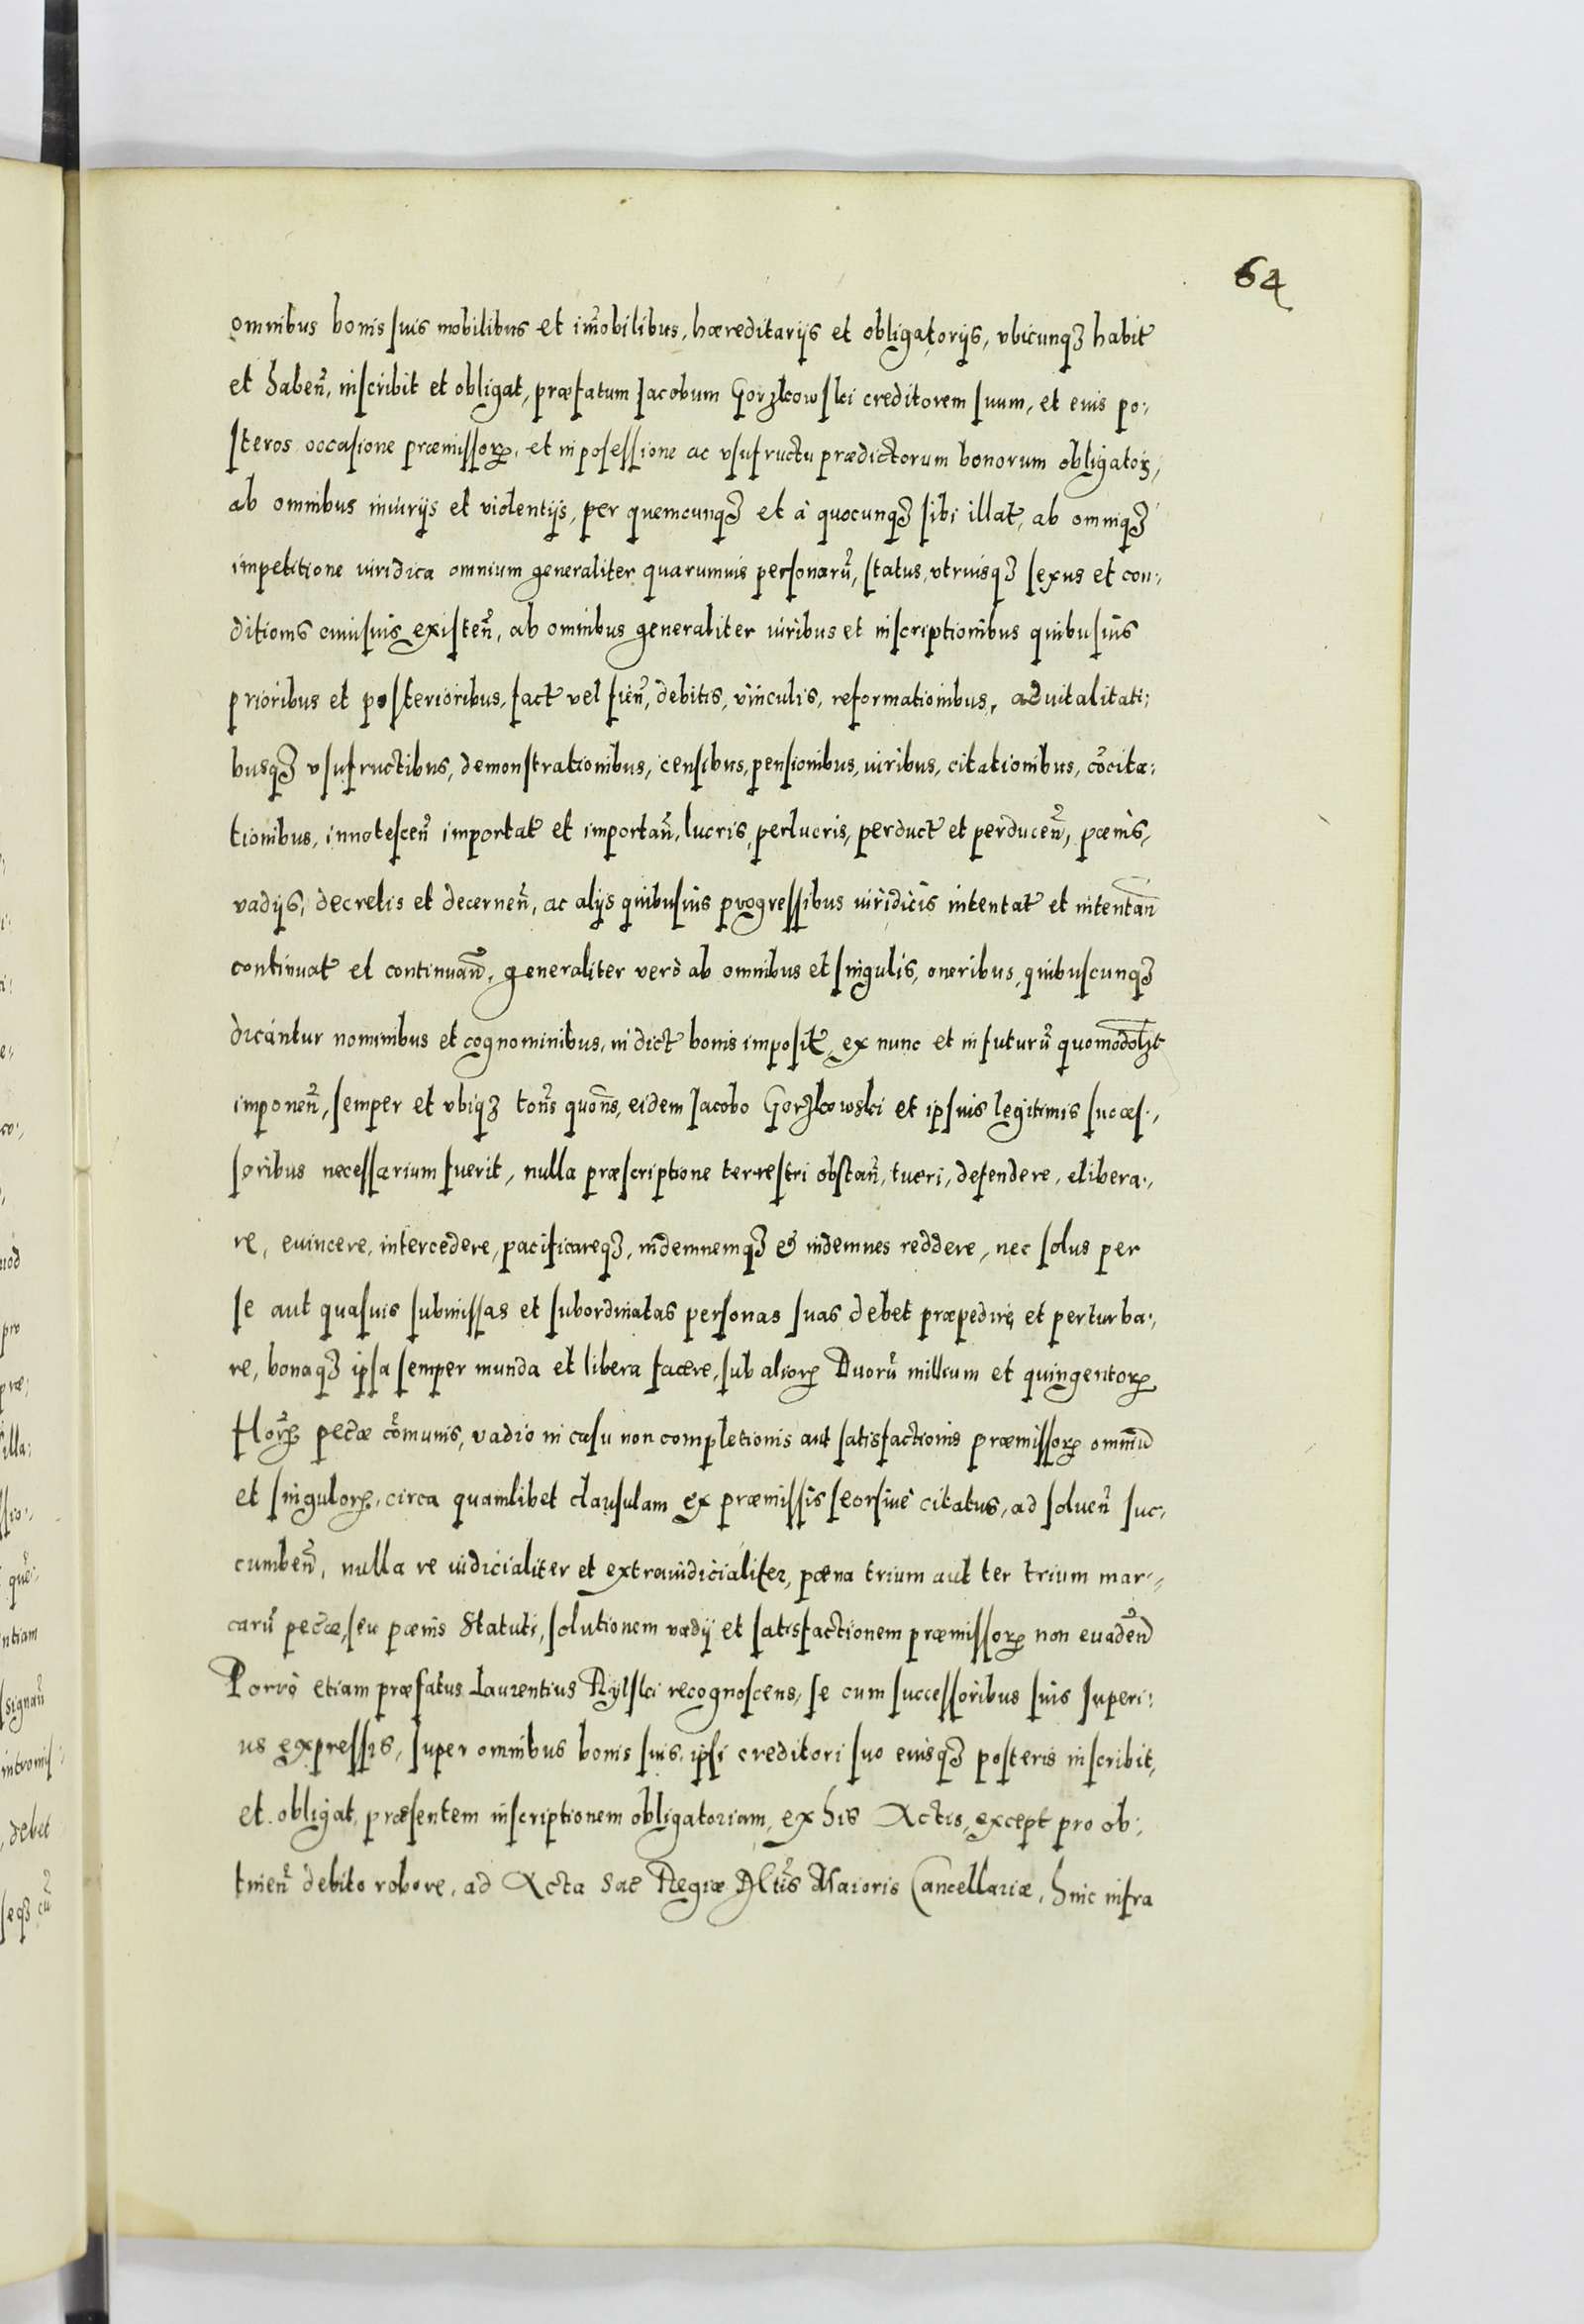 64
omnibus bonis suis mobilibus et im̃obilibus, hæreditarijs et obligatorijs, vbicunqꝫ habit̃
et haben̄, inscribit et obligat, præfatum Jacobum Gorzkowski creditorem suum, et eius po:,
steros occasione præmissorꝝ, et in possessione ac vsufructu prædictorum bonorum obligatorꝝ,
ab omnibus iniurijs et violentijs, per quemcunqꝫ et à quocunqꝫ sibi illat̃, ab omniqꝫ
impetitione iuridica omnium generaliter quarumuis personarũ, status, vtriusqꝫ sexus et con:,
ditionis cuiusuis existen̄, ab omnibus generaliter iuribus et inscriptionibus quibusuis
prioribus et posterioribus, fact̃ vel fien̄, debitis, vinculis, reformationibus, aduitalitati:
busqꝫ vsufructibus, demonstrationibus, censibus, pensionibus, iuribus, citationibus, cõcita:
tionibus, innotescen̄ importat̃ et importan̄, lucris, perlucris, perduct̃ et perducen̄, pœnis,
vadijs, decretis et decernen̄, ac alijs quibusuis progressibus iuridicis intentat̃ et intentan̄
continuat̃ et continuan̄, generaliter verò ab omnibus et singulis, oneribus, quibuscunqꝫ
dicantur nominibus et cognominibus, in dict̃ bonis imposit̃, ex nunc et in futurũ quomodolꝫt
imponen̄, semper et vbiqꝫ toñs quoñs, eidem Jacobo Gorzkowski et ipsius legitimis succes:,
soribus necessarium fuerit, nulla præscriptione terrestri obstan̄, tueri, defendere, elibera:,
re, euincere, intercedere, pacificareqꝫ, indemnemqꝫ & indemnes reddere, nec solus per
se aut quasuis submissas et subordinatas personas suas debet præpedire, et perturba:,
re, bonaqꝫ ipsa semper munda et libera facere, sub aliorꝝ Duorũ millium et quingentorꝝ
florꝝ pecũæ cõmunis, vadio in casu non completionis aut satisfactionis præmissorꝝ omniũ
et singulorꝝ, circa quamlibet clausulam ex præmissis seorsiuè citatus, ad soluen̄ suc,
cumben̄, nulla re iudicialiter et extraiudicialiter, pœna trium aut ter trium mar:,
carũ pecũæ, seu pœnis Statuti, solutionem vadij et satisfactionem præmissorꝝ non euaden̄
Porrò etiam præfatus Laurentius Rylski recognoscens, se cum successoribus suis superi:
us expressis, super omnibus bonis suis, ipsi creditori suo eiusqꝫ posteris inscribit,
et obligat, præsentem inscriptionem obligatoriam, ex his Actis, except̃ pro ob:,
tinen̄ debito robore, ad Acta Sac̃ Regiæ Mt̃is Maioris Cancellariæ, hinc infra